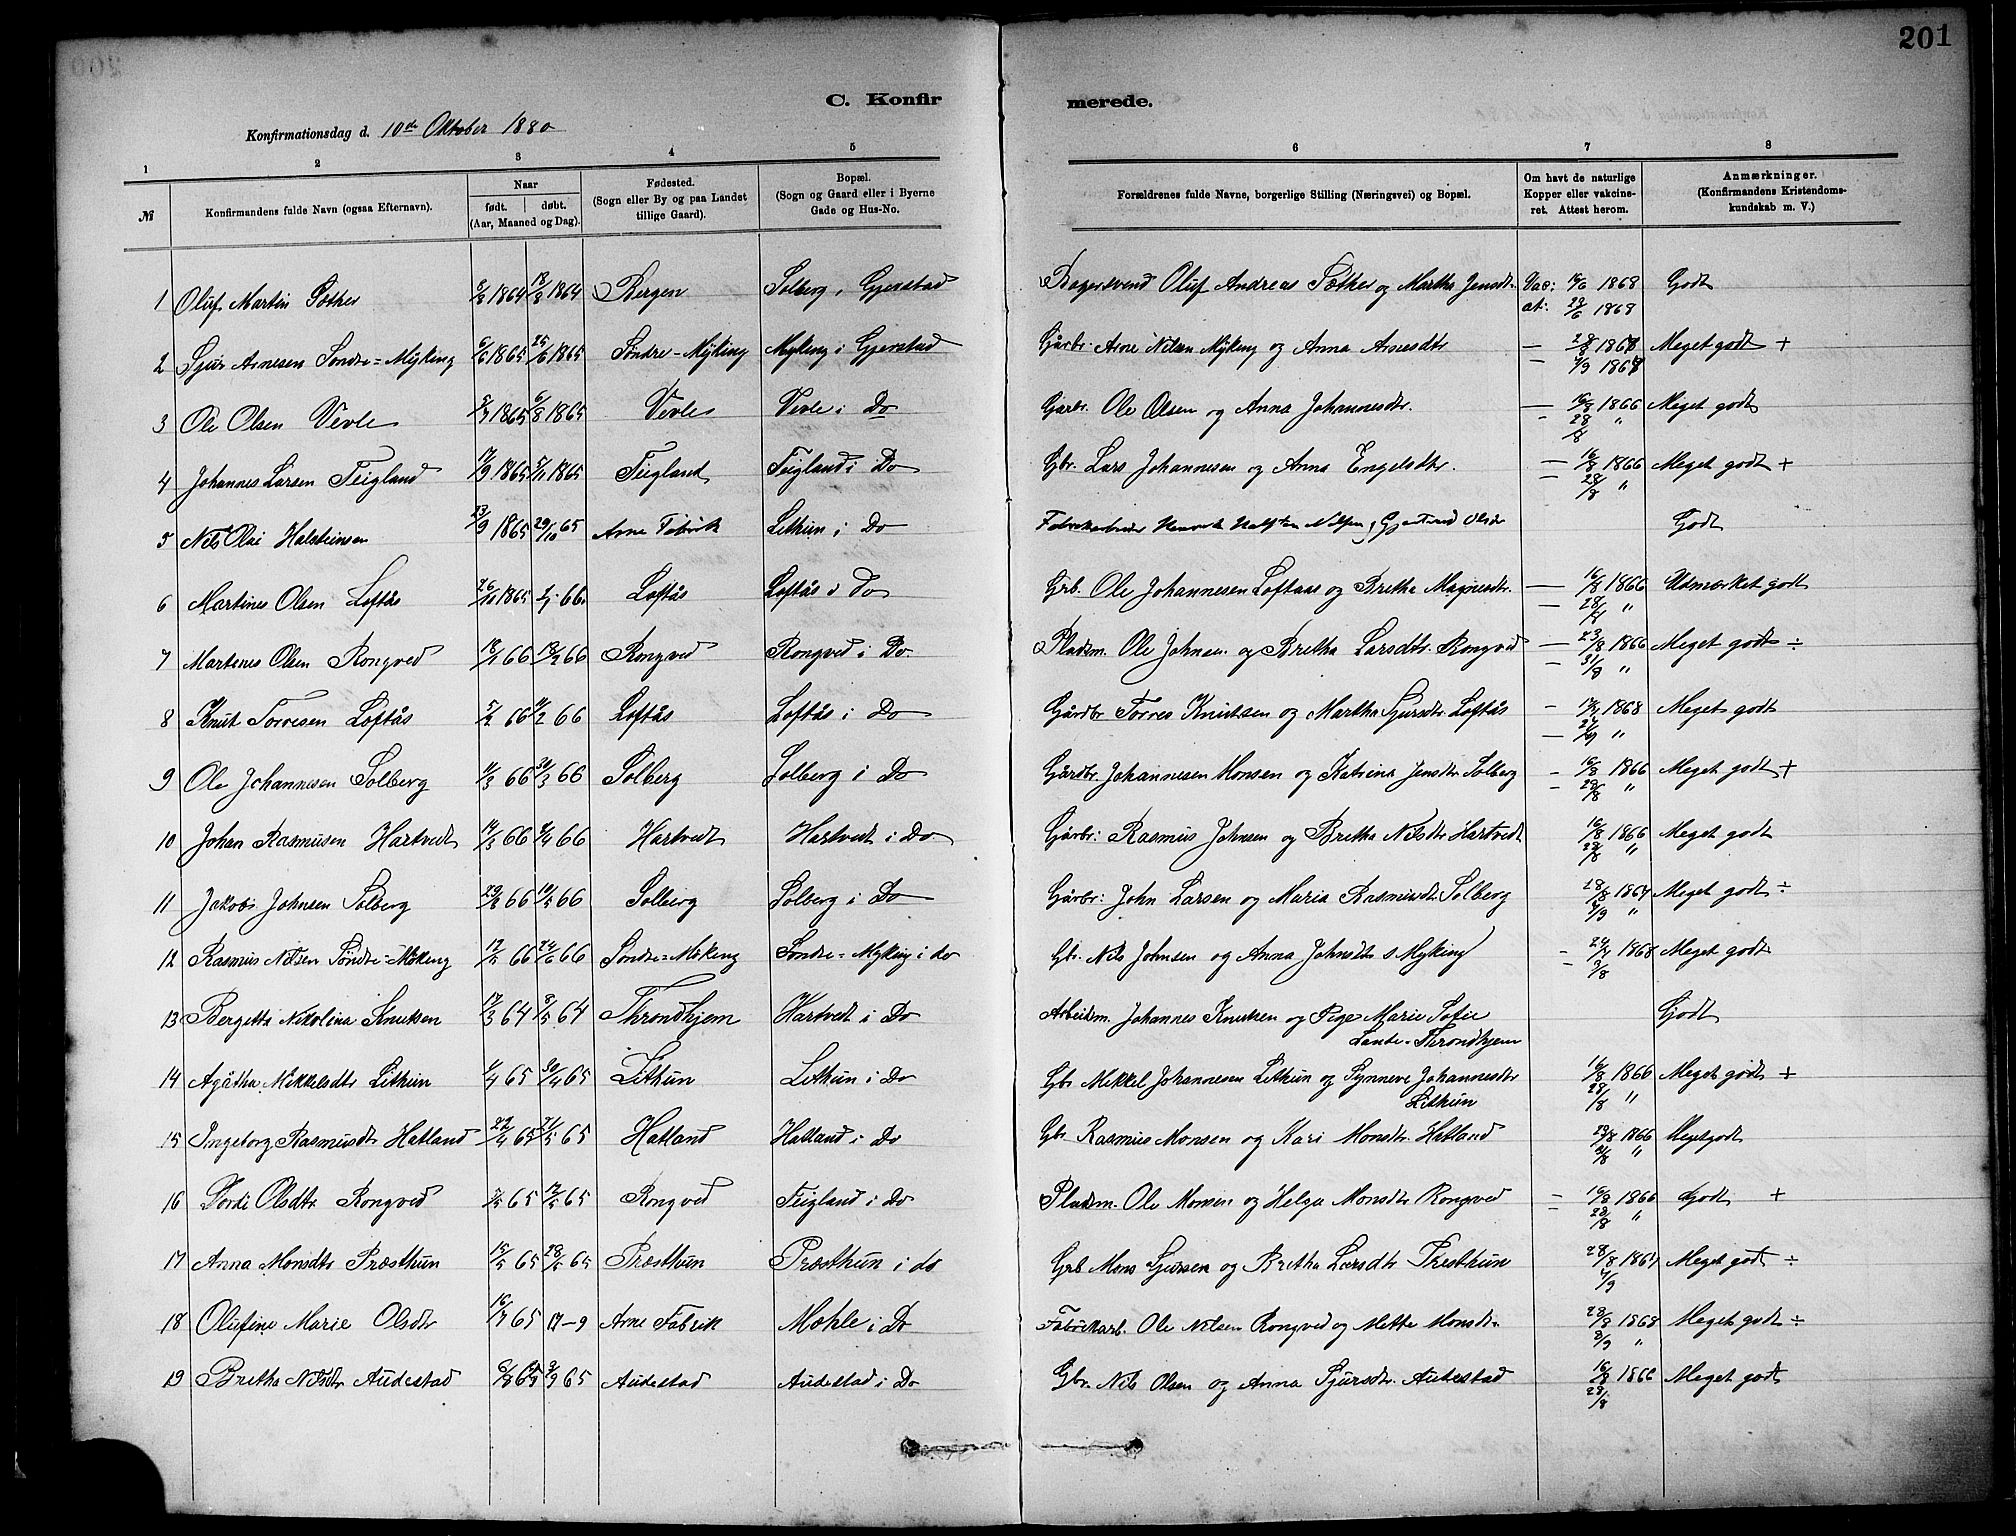 201
C. Konfirmerede.
Konfirmationsdag d. 10de Oktober 1880
1 2 3 4 5 6 7 8
№ Konfirmandens fulde Navn (ogsaa Efternavn). Naar født. døbt. (Aar, Maaned og Dag). Fødested. (Sogn eller By og paa Landet tillige Gaard). Bopæl. (Sogn og Gaard eller i Byerne Gade og Hus-No. Forældrenes fulde Navne, borgerlige Stilling (Næringsvei) og Bopæl. Om havt de naturlige Kopper eller vakcineret. Attest herom. Anmærkninger. (Konfirmandens Kristendomskundskab m. V.)
1 Oluf Martin Sother 1864 1864 Bergen Solberg i Gjerstad Bagersvend Oluf Andreas Sæther og Martha Jensdt. Vac: 1868 Godt
at: 28/6 1868
2 Sjur Arnesen Søndre=Myking 6/6 1865 25/6 1865 Søndre-Myking Myking i Gjerstad Gårbr. Arne Nilsen Myking og Anna Arnesdtr — 28/8 1867 Meget godt +
— 4/9 1867
3 Ole Olsen Vevle 1865 6/8 1865 Vevle Vevle i Do Garbr. Ole Olsen og Anna Johannesdtr. — 16/8 1866 Meget godt
- 28/8 "
4 Johannes Larsen Teigland 17/9 1865 5/11 1865 Teigland Teigland i Do Gbr. Lars Johannesen og Anna Engelsdtr. — 16/8 1866 Meget godt +
— 28/8 "
5 Nils Olai Halsteinsen 23/9 1865 29/10 65 Arne Fabrik Lithun i Do Fabrikarbeider Godt
6 Martines Olsen Loftås 26/10 1865 66 Loftås Loftås i Do Grb. Ole Johannesen Loftaas og Bretha Magnesdtr. — 16/8 1866 Udmærket godt
— 28/8 "
7 Martines Olsen Rongved 18/1 66 18/2 66 Rongved Rongved i Do Pladsm. Ole Johnsen og Bretha Larsdtr. Rongved — 23/8 1866 Meget godt ÷
— 31/8 "
8 Knut Torresen Loftås 5/2 66 11/2 66 Loftås Loftås i Do Gårdbr Torres Knutsen og Martha Sjursdtr Loftås - 1868 Meget godt
— "
9 Ole Johannesen Solberg 11/3 66 30/3 66 Solberg Solberg i Do Gårdbr. Johannesen Monsen og Katrina Jensdtr Solberg - 16/8 1866 Meget godt +
- 28/8 "
10 Johan Rasmusen Hartvedt 14/3 66 66 Hartvedt Hartvedt i Do Gårbr: Rasmus Johnsen og Bretha Nilsdtr Hartvedt 16/8 1866 Meget godt
28/8 "
11 Jakob Johnsen Solberg 66 66 Solberg Solberg i Do Gårbr: John Larsen og Maria Rasmusdtr. Solberg 28/8 1867 Meget godt ÷
4/9 "
12 Rasmus Nilsen Søndre=Møking 66 24/6 66 Søndre=Møking Søndre=Myking i do Gbr. Nils Johnsen og Anna Johnsdtr s Myking - 1868 Meget godt
- 3/8
13 Bergetta Nikolina Knutsen 17/3 64 8/5 64 Throndhjem Hartvedt i Do Arbeidsm. Johannes Knutsen og Pige Marie Sofie Godt
Throndhjem
14 Agåtha Mikkelsdtr Lithun 11/4 65 30/4 65 Lithun Lithun i Do Gbr Mikkel Johannesen Lithun og Synneve Johannesdtr 16/8 1866 Meget godt +
Lithun 28/8 "
15 Ingeborg Rasmusdtr Hatland 22/4 65 65 Hatland Hatland i Do Gbr. Rasmus Monsen og Kari Monsdtr. Hatland 23/8 1866 Megetgodt
31/8 "
16 Dordi Olsdtr Rongved 65 65 Rongved Teigland i Do Pladsm. Ole Monsen og Helga Monsdtr Rongved — 16/8 1866 Godt +
— 28/8 "
17 Anna Monsdtr Præsthun 15/5 65 28/5 65 Præsthun Præsthun i do Grb Mons Sjursen og Bretha Larsdtr Presthun 28/8 1867 Meget godt ÷
4/9
18 Olufine Marie Olsdtr 16/7 65 17-9 Arne Fabrik Mæhle i Do Fabrikarb. Ole Nilsen Rongved og Mette Monsdtr. 28/8 1868 Meget godt ÷
3/9 "
19 Bretha Nilsdtr Audestad 65 3/9 65 Audestad Audestad i Do Gbr. Nils Olsen og Anna Sjursdtr. Audestad 16/8 1866 Meget godt
28/8